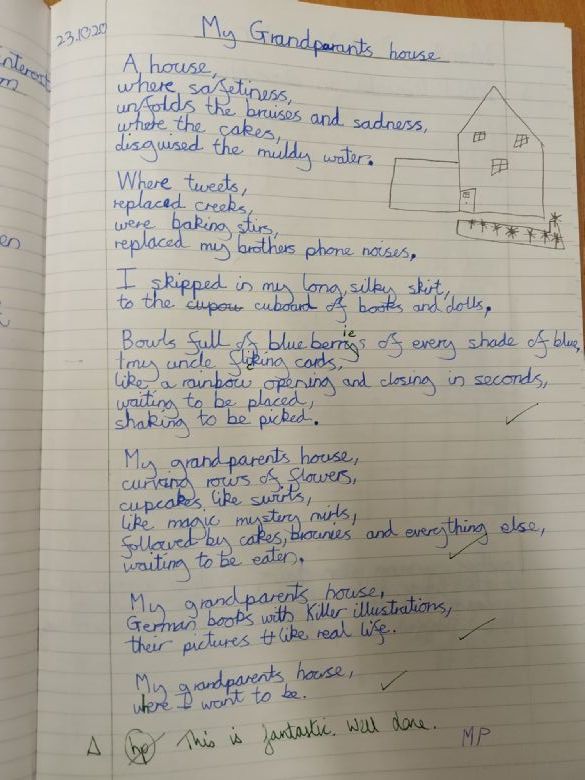 23.10.20
My Grandparents house
interest
m
en
A house,
where safetiness,
unfolds the bruises and sadness,
where the cakes,
disguised the muddy water.
Where tweets,
replaced creeks,
were baking stirs,
replaced my brothers phone noises.
I skipped in my long, silky skirt,
to the cupou cuboard of books and dolls.
Bowls full of blueberrys of every shade of blue,
ie
my uncle flicking cards,
like a rainbow opening and closing in seconds,
waiting to be placed,
shaking to be picked.
My grandparents house,
curving rows of flowers,
cupcakes like swirls,
like magic mystery
followed by cakes, brownies and everything else,
waiting to be eaten.
My grandparents house,
German books with Killer illustrations,
their pictures like real life.
My grandparents house,
where I want to be.
hp This is fantastic. Well done. MP